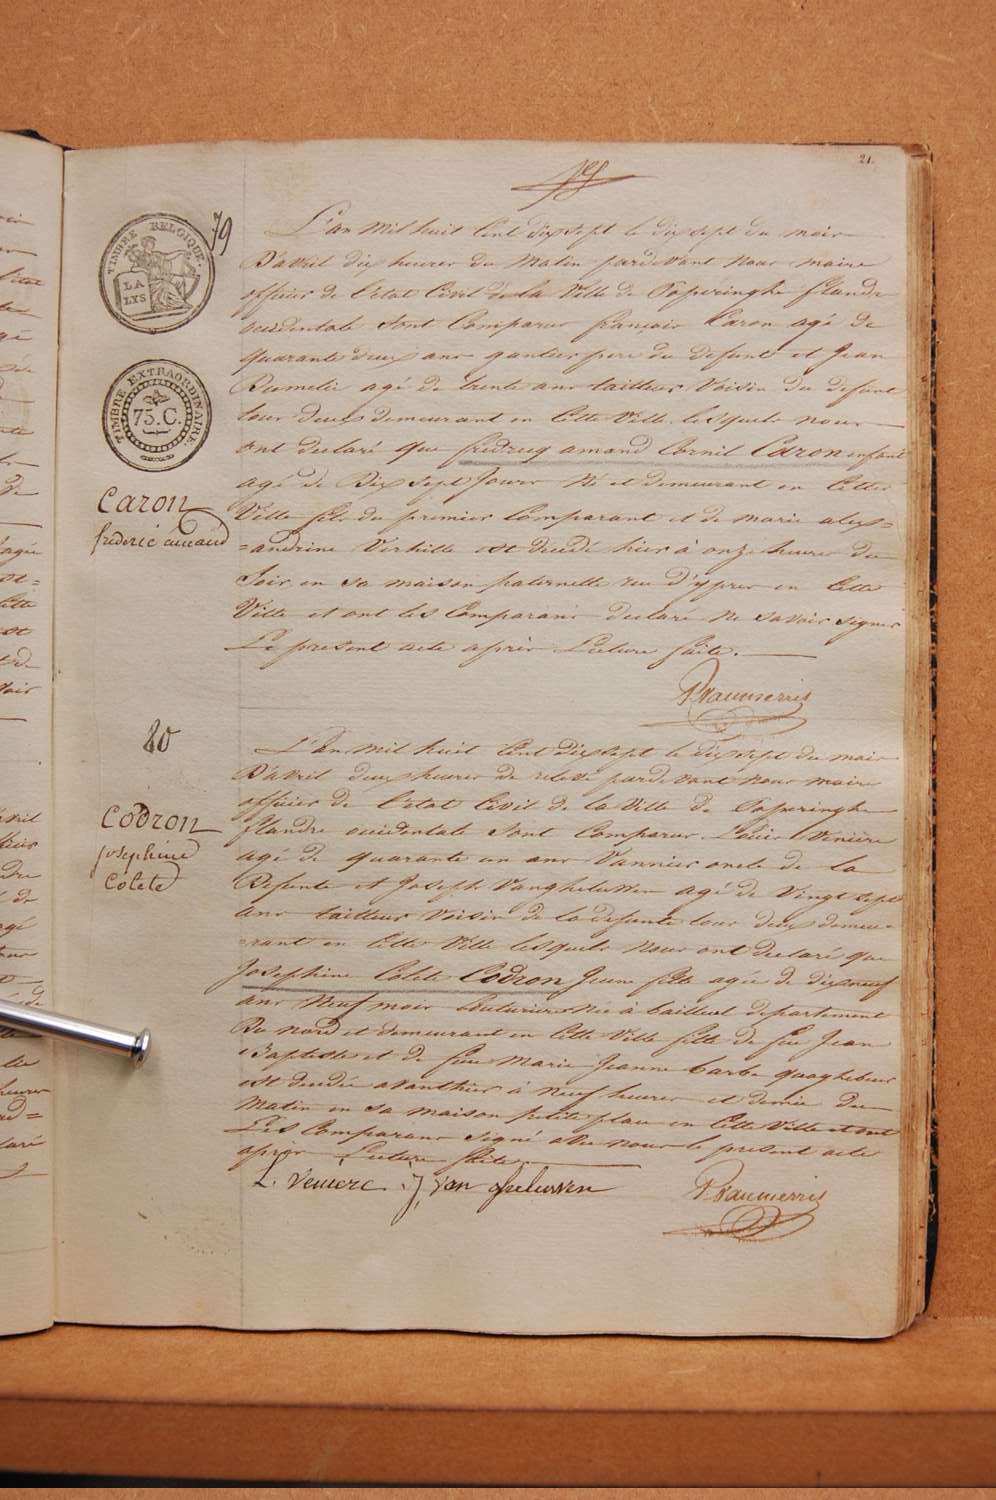 21.
79
TIMBRE BELGIQUE.
LA
LYS
TIMBRE EXTRAORDINAIRE.
75.C.
Caron
frederic amand
L'an mil huit Cent dixsept le dixsept du mois
D'avril dix heures du Matin pardevant nous maire
officier de l'etat Civil de la Ville de Poperinghe flandre
occidentale Sont Comparus françois Caron agé de
quarante deux ans gantier pere du defunt et Jean
agé de trente ans tailleur Voisin du defunt
tous deux demeurant en Cette Ville, lesquels nous
ont declaré que fredericq amand Cornil Caron enfant
agé de Dix sept Jours Né et demeurant en Cette
Ville fils du premier Comparant et de marie alex=
=andrine Verhille est décédé hier à onze heures du
Soir, en sa maison paternelle rue d'ypres en Cette
Ville et ont les Comparans declaré ne savoir signer
Le present acte après Lecture faite.
80
Codron
josephine
Colete
L'An mil huit Cent dixsept le dixsept du mois
D'avril deux heures de relevé pardevant nous maire
officier de l'etat Civil de la Ville de Poperinghe
flandre occidentale Sont Comparus Louis Veniere
agé de quarante un ans Vannier oncle de la
Defunte et Joseph Vanghelusven agé de Vingt sept
ans tailleur Voisin de la defunte tous deux demeu=
=rant en Cette Ville lesquels Nous ont declaré que
Josephine Colete Codron Jeune fille agée de dixneuf
ans Neuf mois Couturiere Née à bailleul departement
Du nord et demeurant en Cette Ville fille de feu Jean
Baptiste et de feue Marie Jeanne barbe quaghebeur
est decedée avanthier à neuf heures et demie du
Matin en sa maison petite place en Cette Ville et ont
Les Comparans signé avec nous le present acte
après Lecture faite
L. Veniere. J, van ghelusven